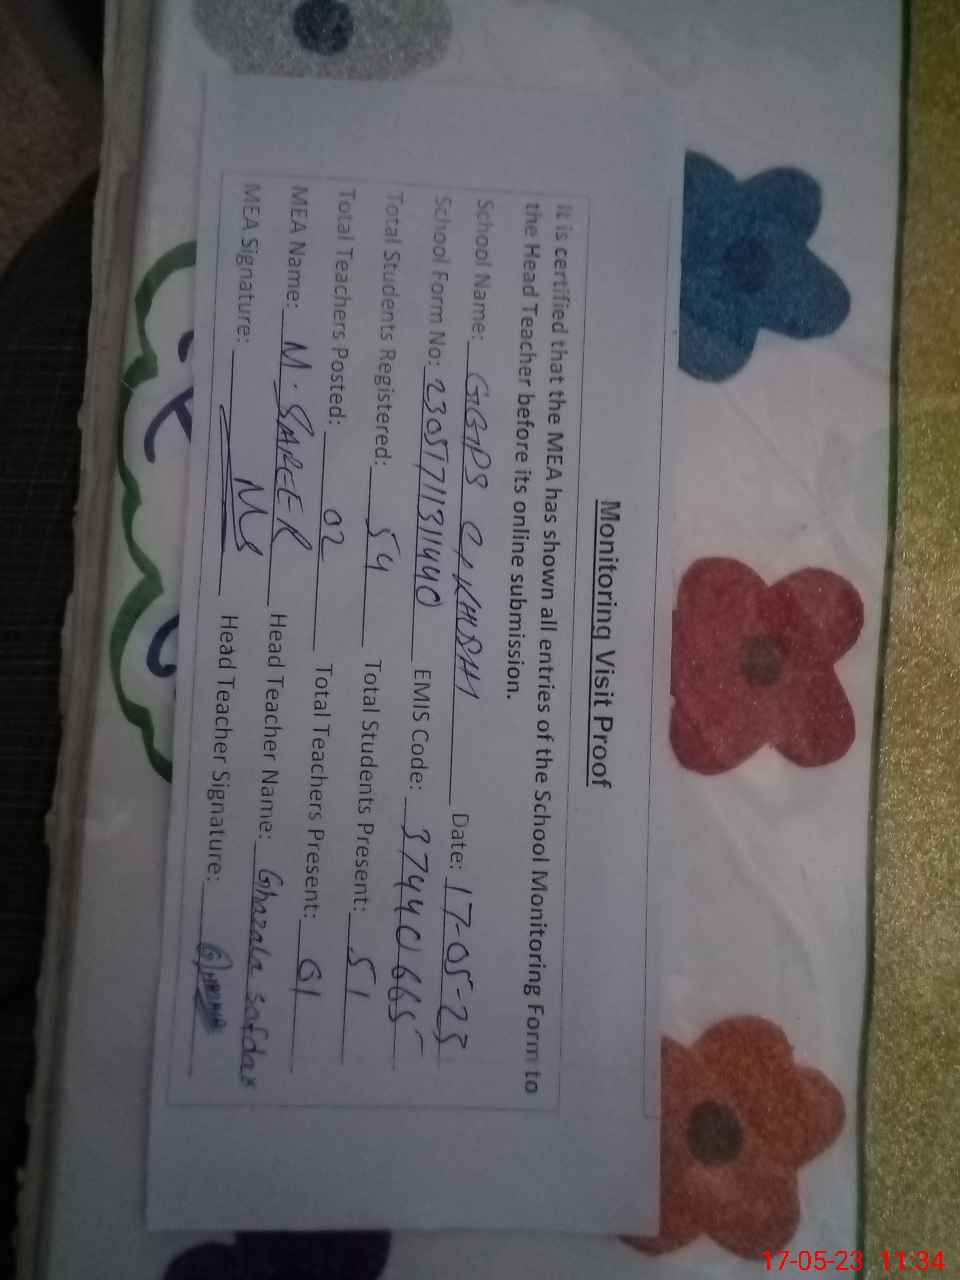 Monitoring Visit Proof
It is certified that the MEA has shown all entries of the School Monitoring Form to
the Head Teacher before its online submission.
School Name: GGPS Date: 17-05-23
School Form No: 2305711311440 EMIS Code: 37440665
Total Students Registered: 54 Total Students Present: 51
Total Teachers Posted: 02 Total Teachers Present: 01
MEA Name: M. Head Teacher Name: Ghazala Safdar
MEA Signature: Head Teacher Signature:
17-05-23 11:34